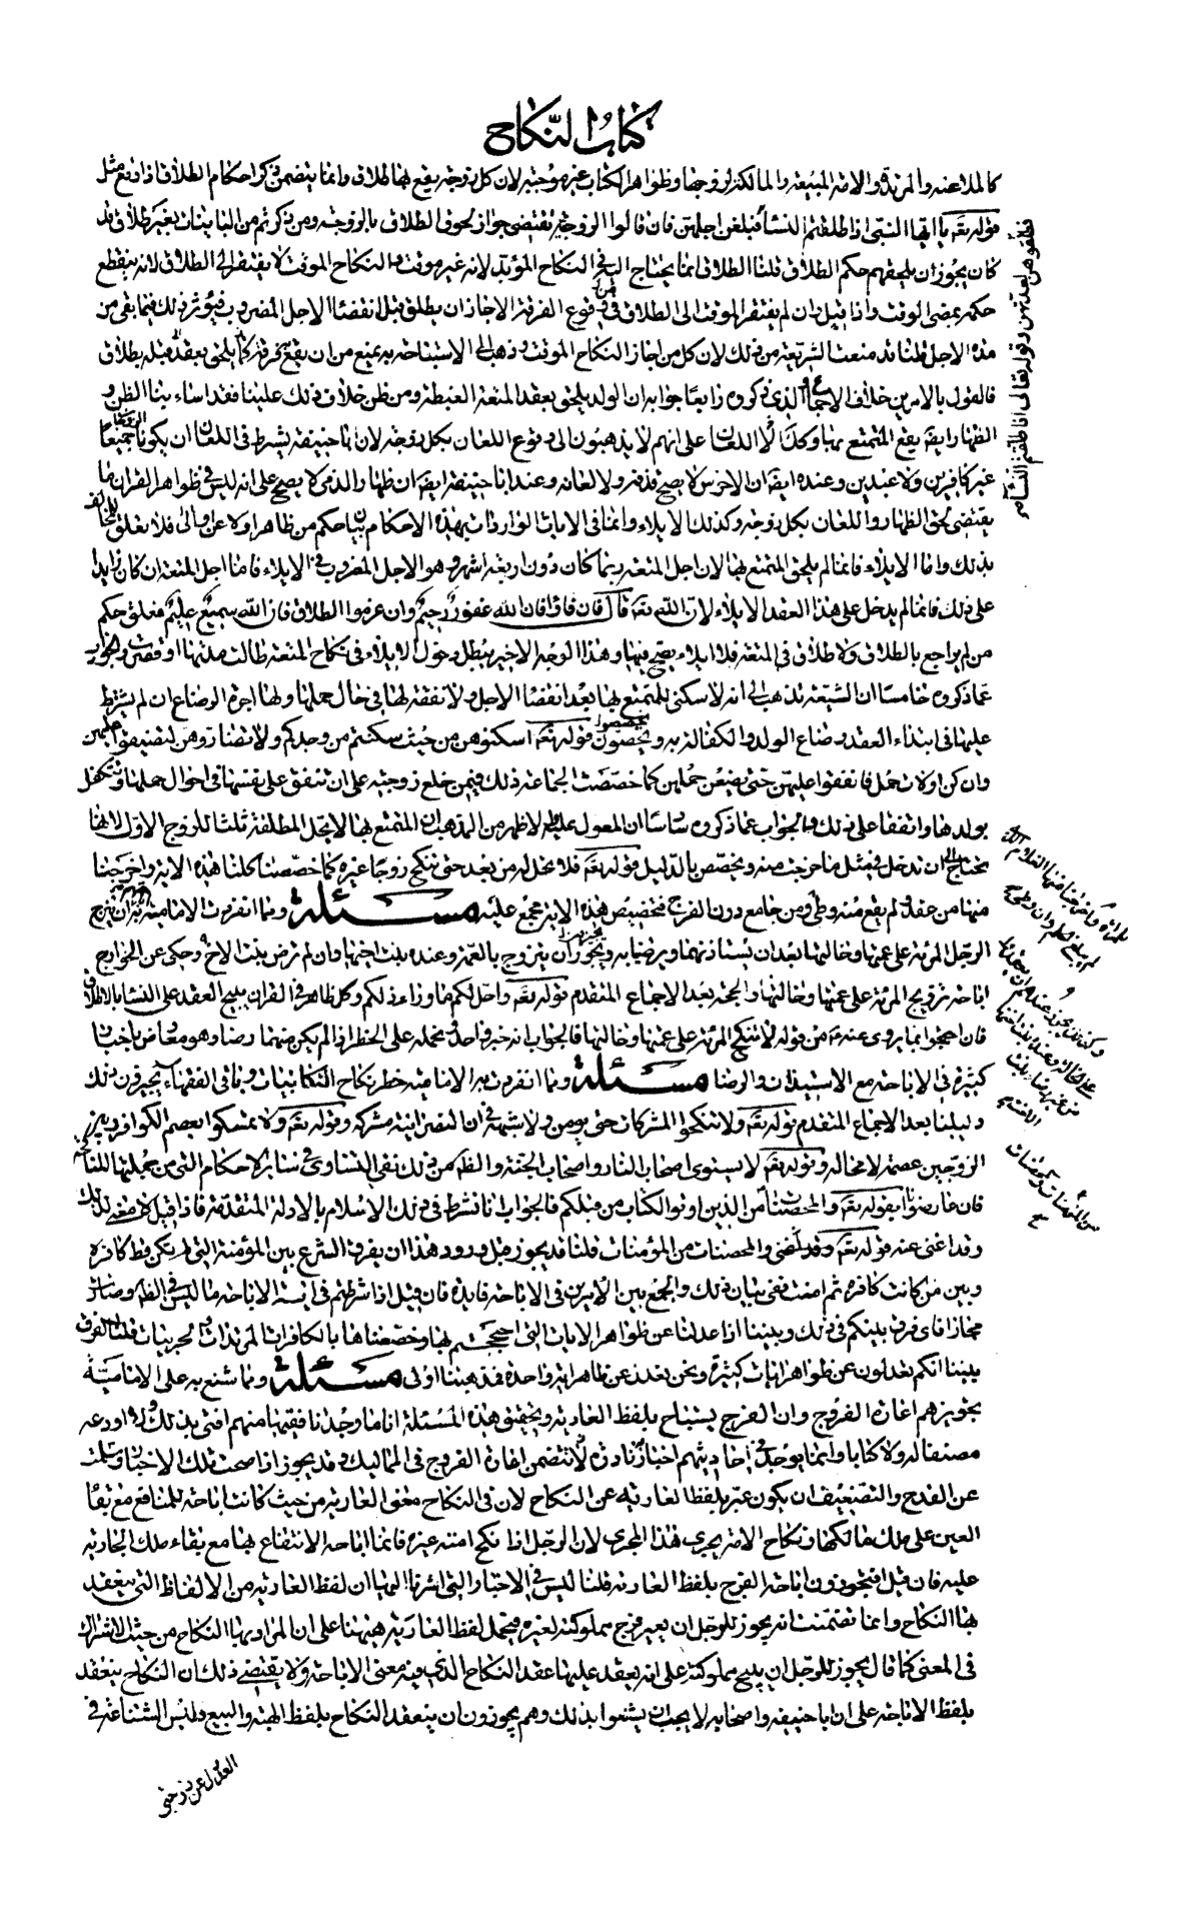 كتاب النكاح
كالملاعنه والمرتدة والامة المبيعة والمالكة لزوجها وظواهر الكتاب غير موجبة لان كل زوجة يقع بها طلاق وانما يتضمن ذكر احكام الطلاق اذا وقع مثل
قوله تعـ يا ايها النبى اذا طلقتم النساء فبلغن اجلهن فان قالوا الزوجية تقتضى جواز لحوق الطلاق بالزوجة ومن ذكرتم من البائنات بغير طلاق قد
كان يجوز ان يلحقهم حكم الطلاق قلنا الطلاق انما يحتاج اليه فى النكاح المؤبد لانه غير موقت والنكاح الموقت لا يفتقر الى الطلاق لانه ينقطع
حكمه بمضى الوقت واذا قيل وان لم يفتقر الموقت الى الطلاق فى وقوع الفرقة الا جاز ان يطلق قبل انقضاء الاجل المضروب فيؤثر ذلك فيما بقى من
مدة الاجل قلنا قد منعت الشريعة من ذلك لان كل من اجاز النكاح الموقت وذهب الى الاستباحة به يمنع من ان يقع فرقة قبله بطلاق
فالقول بالامرين خلاف الاجماع الذى ذكروه رابعا جوابه ان الولد يلحق بعقد المتعة ومن ظن خلاف ذلك علينا فقد اساء بنا الظن و
الظهار ايضا يقع بالمتمتع بها وكذا اللعان على انهم لا يذهبون الى وقوع اللعان بكل زوجة لان ابا حنيفة يشترط فى اللعان ان يكون الزوجان جميعا
غير كافرين ولا عبدين وعنده ايضا ان الاخرس لا يصح قذفه ولا لعانه وعند ابا حنيفة ايضا ان ظهار الذمى لا يصح على انه ليس فى ظواهر القران ما
يقتضى لحوق الظهار واللعان بكل زوجة وكذلك الايلاء وانما فى الايات الواردات بهذه الاحكام بيان حكم من ظاهر او لاعن او الى فلا تعلق للمخالف
بذلك واما الايلاء فانما لم يلحق المتمتع بها لان اجل المتعة ربما كان دون اربعة اشهر وهو الاجل المضروب فى الايلاء فاما اجل المتعة ان كان زايدا
على ذلك فانما لم يدخل على هذا العقد الايلاء لان الله تعـ قال فان فاؤا فان الله غفور رحيم وان عزموا الطلاق فان الله سميع عليم فعلق حكم
من لم يراجع بالطلاق ولا طلاق فى المتعة فلا ايلاء يصح فيها وهذا الوجه الاخير يبطل دخول الايلاء فى نكاح المتعة طالت مدتها او قصرت والجواب
عما ذكروه خامسا ان الشيعة تذهب الى انه لا سكنى للمتمتع بها بعد انقضاء الاجل ولا نفقة لها فى حال حملها ولها اجرة الرضاع ان لم يشترط
عليها فى ابتداء العقد رضاع الولد والكفالة به ويخصون قوله تعـ اسكنوهن من حيث سكنتم من وجدكم ولا تضاروهن لتضيقوا عليهن
وان كن اولات حمل فانفقوا عليهن حتى يضعن حملهن كما خصصت الجماعة ذلك فيمن خلع زوجته على ان تنفق على نفسها فى احوال حملها وتتكفل
بولدها واتفقا على ذلك والجواب عما ذكروه سادسا ان المعول عليه الاظهر من المذهب ان المتمتع بها لا تحل المطلقة ثلثا للزوج الاول لانها
تحتاج الى ان تدخل فى مثل ما خرجت منه ويخصص بالدليل قوله تعـ فلا تحل له من بعد حتى تنكح زوجا غيره كما خصصنا كلنا هذه الاية واخرجنا
منها من عقد ولم يقع منه وطى ومن جامع دون الفرج فتخصيص هذه الاية مجمع عليه مسئلة ومما انفردت الامامية به ان يتزوج
الرجل المرئة على عمتها وخالتها بعد ان يستاذنهما ويرضيا به ويجوز ان يتزوج بالعمة وعنده بنت اخيها وان لم ترض بنت الاخ وحكى عن الخوارج
اباحة تزويج المرئة على عمتها وخالتها والحجة بعد الاجماع المتقدم قوله تعـ واحل لكم ما وراء ذلكم وكل ظاهر فى القران يبيح العقد على النساء بالاطلاق
فان احتجوا بما يروى عنه من قوله لا تنكح المرئة على عمتها وخالتها فالجواب انه خبر واحد ونحمله على الحظر اذا لم يكن منهما رضا وهو معارض باخبار
كثيرة فى الاباحة مع الاستيذان والرضا مسئلة ومما انفردت به الامامية حظر نكاح الكتابيات وباقى الفقهاء يجيزون ذلك
دليلنا بعد الاجماع المتقدم قوله تعـ ولا تنكحوا المشركات حتى يومن ولا شبهة فى ان النصرانية مشركة وقوله تعـ ولا تمسكوا بعصم الكوافر وبين
الزوجين عصمة لا محالة وقوله تعـ لا يستوى اصحاب النار واصحاب الجنة والظاهر من ذلك نفى التساوى فى سائر الاحكام التى من جملتها المناكحة
فان عارضوا بقوله تعـ والمحصنات من الذين اوتوا الكتاب من قبلكم فالجواب انا نشرط فى ذلك الاسلام بالادلة المتقدمة فاذا قيل لا معنى لذلك
وقد اغنى عنه قوله تعـ والمحصنات من المؤمنات قلنا قد يجوز قبل ورود هذا ان يفرق الشرع بين المؤمنة التى لم يكن قط كافرة
وبين من كانت كافرة ثم امنت ففى بيان ذلك والجمع بين الامرين فى الاباحة فايدة فان قيل اذا شرطتم فى اية الاباحة ما ليس فى الظاهر وصارت
مجازا فاى فرق بينكم فى ذلك وبيننا اذا عدلنا عن ظواهر الايات التى احتججتم بها وخصصناها بالكافرات المرتدات والحربيات قلنا الفرق
بيننا انكم تعدلون عن ظواهر ايات كثيرة ونحن نعدل عن ظاهر اية واحدة فمذهبنا اولى مسئلة ومما شنع به على الامامية
تجويزهم اعارة الفروج وان الفرج يستباح بلفظ العارية وتحقيق هذه المسئلة انا ما وجدنا فقيها منهم افتى بذلك ولا اودعه
مصنفا له ولا كتابا وانما يوجد فى احاديثهم اخبار نادرة تتضمن اعارة الفروج فى المماليك وقد يجوز اذا صحت تلك الاخبار وسلمت
عن القدح والتضعيف ان يكون عبر بلفظ العارية عن النكاح لان فى النكاح معنى العارية من حيث كانت اباحة للمنافع مع بقاء
العين على ملك مالكها ونكاح الامة يجرى هذا المجرى لان الرجل اذا نكح امته غيره فانما اباحه الانتفاع بها مع بقاء ملك الجارية
عليه فان قيل افتجوزون اباحة الفرج بلفظ العارية قلنا ليس فى الاخبار التى اشرنا اليها ان لفظ العارية من الالفاظ التى ينعقد
بها النكاح وانما تضمنت انه يجوز للرجل ان يعير فرج مملوكته لغيره فيحمل لفظ العارية هيهنا على ان المراد بها النكاح من حيث الاشتراك
فى المعنى كما قال يجوز للرجل ان يبيح مملوكته على انه يعقد عليها عقد النكاح الذى فيه معنى الاباحة ولا يقتضى ذلك ان النكاح ينعقد
بلفظ الاباحة على ان ابا حنيفة واصحابه لا يجب ان يشنعوا بذلك وهم يجوزون ان ينعقد النكاح بلفظ الهبة والبيع وليس الشناعة فى
فطلقوهن لعدتهن وقوله تعالى اذا طلقتم النساء
العدول عن زوجنى